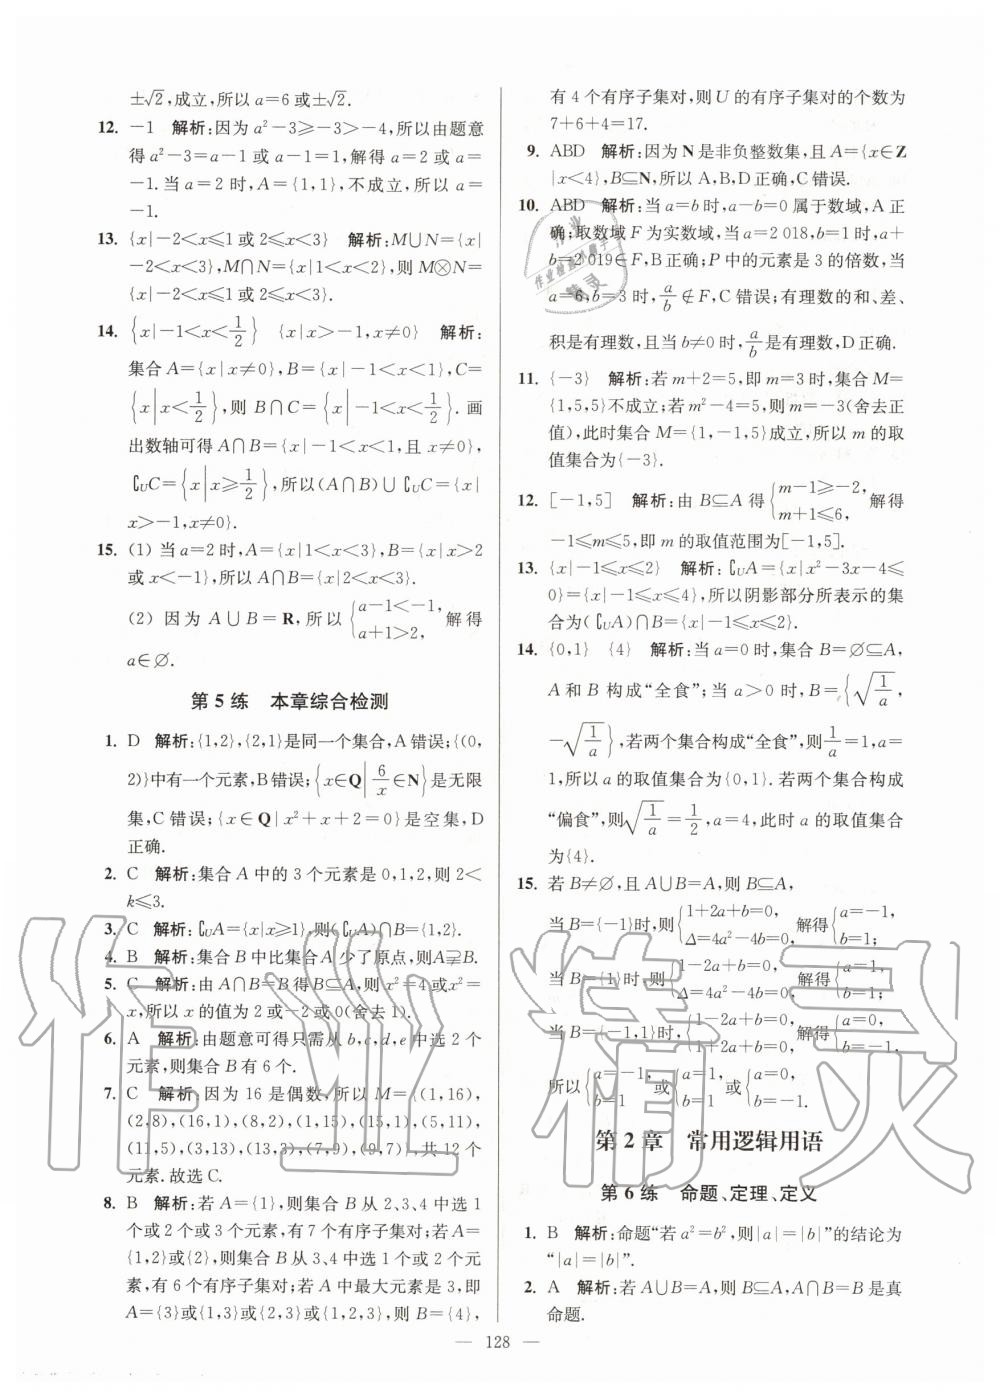 ±√2,成立,所以 a=6或±√2.
12. -1 解析:因为 a²-3≥-3>-4,所以由题意
得 a²-3=a-1 或 a-1=1,解得 a=2 或 a=
-1.当 a=2 时,A={1,1},不成立,所以 a=
-1.
13. {x|-2<x≤1 或 2≤x<3} 解析:M∪N={x|
-2<x<3},M∩N={x|1<x<2},则 M⊗N=
{x|-2<x≤1 或 2≤x<3}.
14. {x|-1<x<1/2} {x|x>-1,x≠0} 解析:
集合 A={x|x≠0},B={x|-1<x<1},C=
{x|x<1/2},则 B∩C={x|-1<x<1/2}.画
出数轴可得 A∩B={x|-1<x<1,且 x≠0},
∁UC={x|x≥1/2},所以(A∩B)∪∁UC={x|
x>-1,x≠0}.
15. (1) 当 a=2 时,A={x|1<x<3},B={x|x>2
或 x<-1},所以 A∩B={x|2<x<3}.
(2) 因为 A∪B=R,所以{a-1<-1, a+1>2, 解得
a∈∅.
第 5 练 本章综合检测
1. D 解析:{1,2},{2,1}是同一个集合,A 错误;{(0,
2)}中有一个元素,B 错误;{x∈Q|6/x∈N}是无限
集,C 错误;{x∈Q|x²+x+2=0}是空集,D
正确.
2. C 解析:集合 A 中的 3 个元素是 0,1,2,则 2<
k≤3.
3. C 解析:∁UA={x|x≥1},则(∁UA)∩B={1,2}.
4. B 解析:集合 B 中比集合 A 少了原点,则A⫌B.
5. C 解析:由 A∩B=B 得B⊆A,则 x²=4 或x²=
x,所以 x 的值为 2 或-2 或 0(舍去 1).
6. A 解析:由题意可得只需从 b,c,d,e 中选 2 个
元素,则集合 B 有 6 个.
7. C 解析:因为 16 是偶数,所以 M={(1,16),
(2,8),(16,1),(8,2),(1,15),(15,1),(5,11),
(11,5),(13,3),(13,3),(7,9),(9,7)},共 12 个
元素.故选 C.
8. B 解析:若 A={1},则集合 B 从 2,3,4 中选 1
个或 2 个或 3 个元素,有 7 个有序子集对;若 A=
{1,2}或{2},则集合 B 从 3,4 中选 1 个或 2 个元
素,有 6 个有序子集对;若 A 中最大元素是 3,即
A={3}或{1,3}或{2,3}或{1,2,3},则 B={4},
有 4 个有序子集对,则 U 的有序子集对的个数为
7+6+4=17.
9. ABD 解析:因为 N 是非负整数集,且 A={x∈Z
|x<4},B⊆N,所以 A,B,D 正确,C 错误.
10. ABD 解析:当 a=b 时,a-b=0 属于数域,A 正
确;取数域 F 为实数域,当 a=2 018,b=1 时,a+
b=2 019∈F,B 正确;P 中的元素是 3 的倍数,当
a=6,b=3 时,a/b∉F,C 错误;有理数的和、差、
积是有理数,且当 b≠0 时,a/b是有理数,D 正确.
11. {-3} 解析:若 m+2=5,即 m=3 时,集合 M=
{1,5,5}不成立;若 m²-4=5,则 m=-3(舍去正
值),此时集合 M={1,-1,5}成立,所以 m 的取
值集合为{-3}.
12. [-1,5] 解析:由 B⊆A 得{m-1≥-2, m+1≤6, 解得
-1≤m≤5,即 m 的取值范围为[-1,5].
13. {x|-1≤x≤2} 解析:∁UA={x|x²-3x-4≤
0}={x|-1≤x≤4},所以阴影部分所表示的集
合为(∁UA)∩B={x|-1≤x≤2}.
14. {0,1} {4} 解析:当 a=0 时,集合 B=∅⊆A,
A 和 B 构成“全食”;当 a>0 时,B={√(1/a),
-√(1/a)},若两个集合构成“全食”,则√(1/a)=1,a=
1,所以 a 的取值集合为{0,1}.若两个集合构成
“偏食”,则√(1/a)=1/2,a=4,此时 a 的取值集合
为{4}.
15. 若 B≠∅,且 A∪B=A,则 B⊆A,
当 B={-1}时,则{1+2a+b=0, Δ=4a²-4b=0, 解得{a=-1, b=1;
当 B={1}时,则{1-2a+b=0, Δ=4a²-4b=0, 解得{a=1, b=1;
当 B={-1,1}时,{1-2a+b=0, 1+2a+b=0, 解得{a=0, b=-1,
所以{a=-1, b=1 或{a=1, b=1 或{a=0, b=-1.
第 2 章 常用逻辑用语
第 6 练 命题、定理、定义
1. B 解析:命题“若 a²=b²,则|a|=|b|”的结论为
“|a|=|b|”.
2. A 解析:若 A∪B=A,则 B⊆A,A∩B=B 是真
命题.
— 128 —
作业精灵